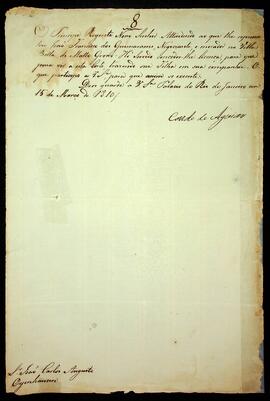 O Principe Regente Nosso Senhor Attendendo ao que lhe representou João Francisco dos Guimaraens Negociante e morador na Villa
Bella de Matto Grosso: He Servido conceder-lhe licença para que
possa vir a esta Corte trazendo sua Filha em sua companhia. O
que participo a V. Sª para que assim se execute.
Deos guarde a V. Sª Palacio do Rio de Janeiro em
15 de Março de 1810/
Conde de Aguiar
Sr. João Carlos Augusto
Oeynhausen